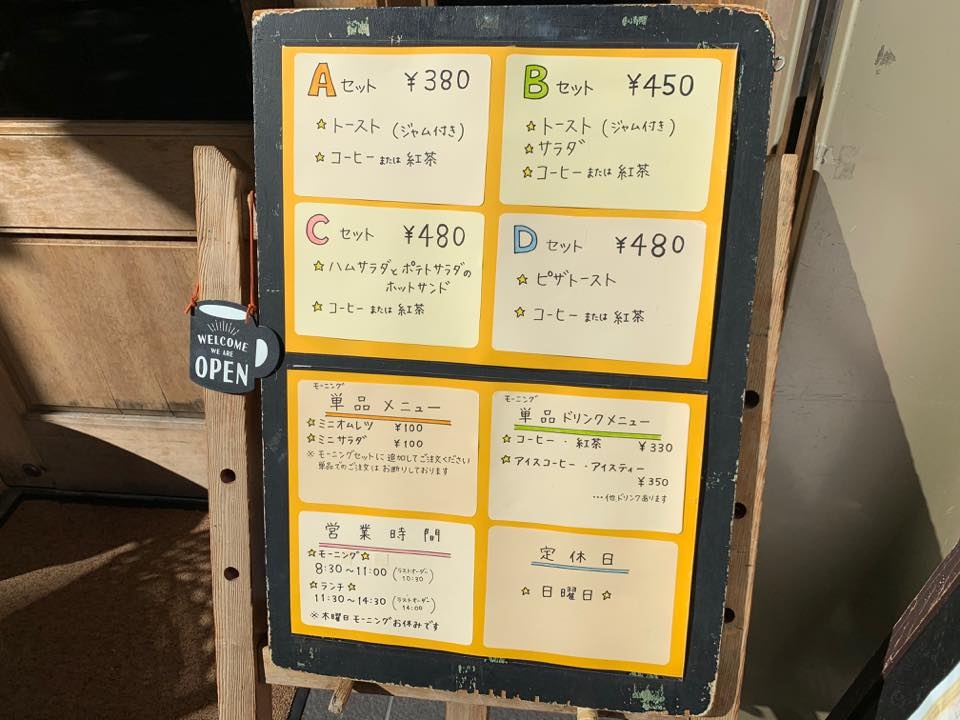 A セット ¥380
☆トースト (ジャム付き)
☆コーヒー または 紅茶
B セット ¥450
☆トースト (ジャム付き)
☆サラダ
☆コーヒー または 紅茶
C セット ¥480
☆ハムサラダとポテトサラダの
ホットサンド
☆コーヒー または 紅茶
D セット ¥480
☆ピザトースト
☆コーヒー または 紅茶
WELCOME
WE ARE
OPEN
モーニング
単品 メニュー
☆ミニオムレツ ¥100
☆ミニサラダ ¥100
※モーニングセットに追加してご注文ください
単品でのご注文は お断りしております
モーニング
単品 ドリンクメニュー
☆コーヒー・紅茶 ¥330
☆アイスコーヒー・アイスティー
¥350
…他ドリンクあります
営業時間
☆モーニング☆
8:30~11:00 (ラストオーダー 10:30)
☆ランチ☆
11:30~14:30 (ラストオーダー 14:00)
※木曜日モーニングお休みです
定休日
☆日曜日☆